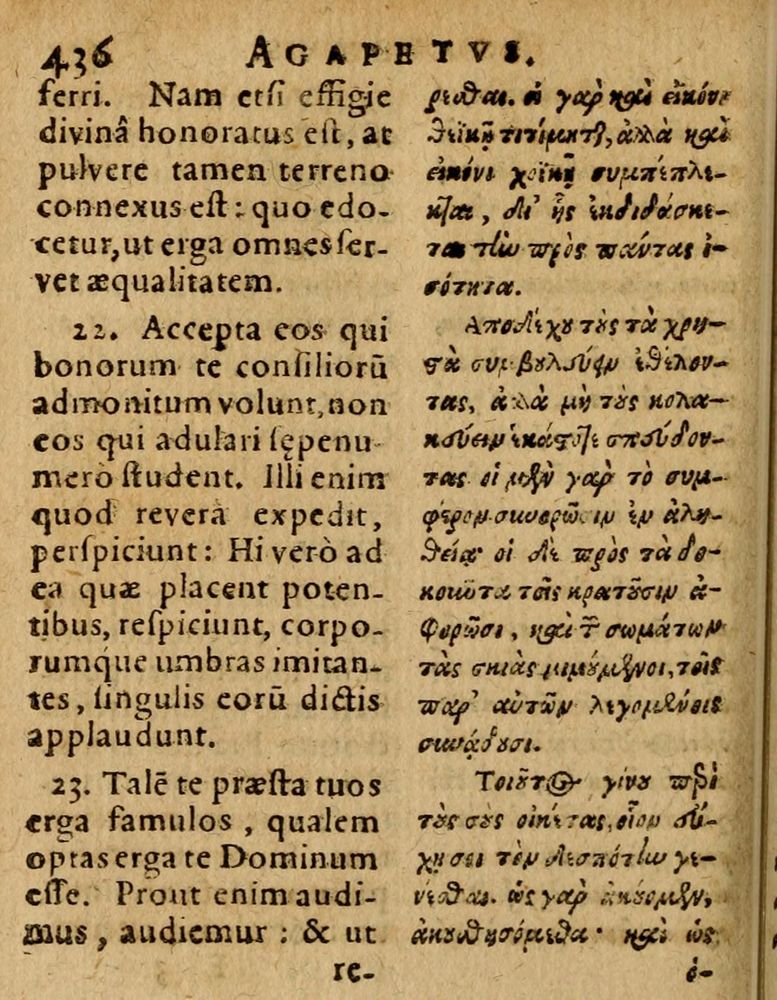 436 AGAPETVS.
ferri. Nam etſi effigie
divinâ honoratus eſt, at
pulvere tamen terreno
connexus eſt: quo edo-
cetur, ut erga omnes ſer-
vet æqualitatem.
22. Accepta eos qui
bonorum te conſiliorū
admonitum volunt, non
eos qui adulari ſępenu
merò ſtudent. Illi enim
quod reverà expedit,
perſpiciunt: Hi verò ad
ea quæ placent poten-
tibus, reſpiciunt, corpo-
rumque umbras imitan-
tes, ſingulis eorū dictis
applaudunt.
23. Talē te præſta tuos
erga famulos, qualem
optas erga te Dominum
eſſe. Prout enim audi-
mus, audiemur: & ut
re-
ρεσθαι. εἰ γὰρ καὶ εἰκόνι
θεϊκῇ τετίμηται, ἀλλὰ καὶ
εἰκόνι χοϊκῇ συμπέπλε-
κται, δι' ἧς ἐκδιδάσκε-
ται τὴν πρὸς πάντας ἰ-
σότητα.
Αποδέχου τοὺς τὰ χρη-
στὰ συμβουλεύειν ἐθέλον-
τας, ἀλλὰ μὴ τοὺς κολα-
κεύειν ἑκάστοτε σπεύδον-
τας οἱ μὲν γὰρ τὸ συμ-
φέρον συνορῶσιν ἐν ἀλη-
θείᾳ· οἱ δὲ πρὸς τὰ δο-
κοῦντα τοῖς κρατοῦσιν ἀ-
φορῶσι, καὶ τῶν σωμάτων
τὰς σκιὰς μιμούμενοι, τοῖς
παρ' αὐτῶν λεγομένοις
συνᾴδουσι.
Τοιοῦτος γίνου περὶ
τοὺς σοὺς οἰκέτας, οἷον εὔ-
χῃ σοι τὸν δεσπότην γε-
νέσθαι. ὡς γὰρ ἀκούομεν,
ἀκουσθησόμεθα· καὶ ὡς
ὁ-